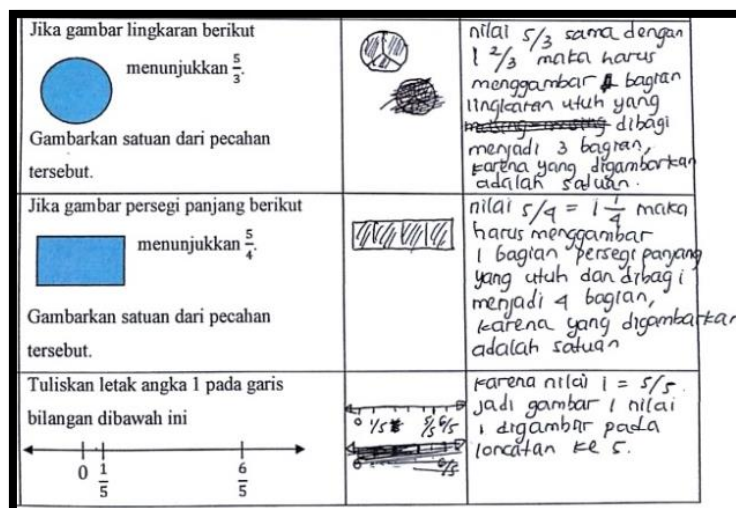 Jika gambar lingkaran berikut
menunjukkan 5/3.
Gambarkan satuan dari pecahan
tersebut.
nilai 5/3 sama dengan
1 2/3 maka harus
menggambar 1 bagian
lingkaran utuh yang
dibagi
menjadi 3 bagian,
karena yang digambarkan
adalah satuan.
Jika gambar persegi panjang berikut
menunjukkan 5/4.
Gambarkan satuan dari pecahan
tersebut.
nilai 5/4 = 1 1/4 maka
harus menggambar
1 bagian persegi panjang
yang utuh dan dibagi
menjadi 4 bagian,
karena yang digambarkan
adalah satuan
Tuliskan letak angka 1 pada garis
bilangan dibawah ini
0 1/5 6/5
0 1/5 5/5 6/5
0 6/5
karena nilai 1 = 5/5.
jadi gambar 1 nilai
1 digambar pada
loncatan ke 5.